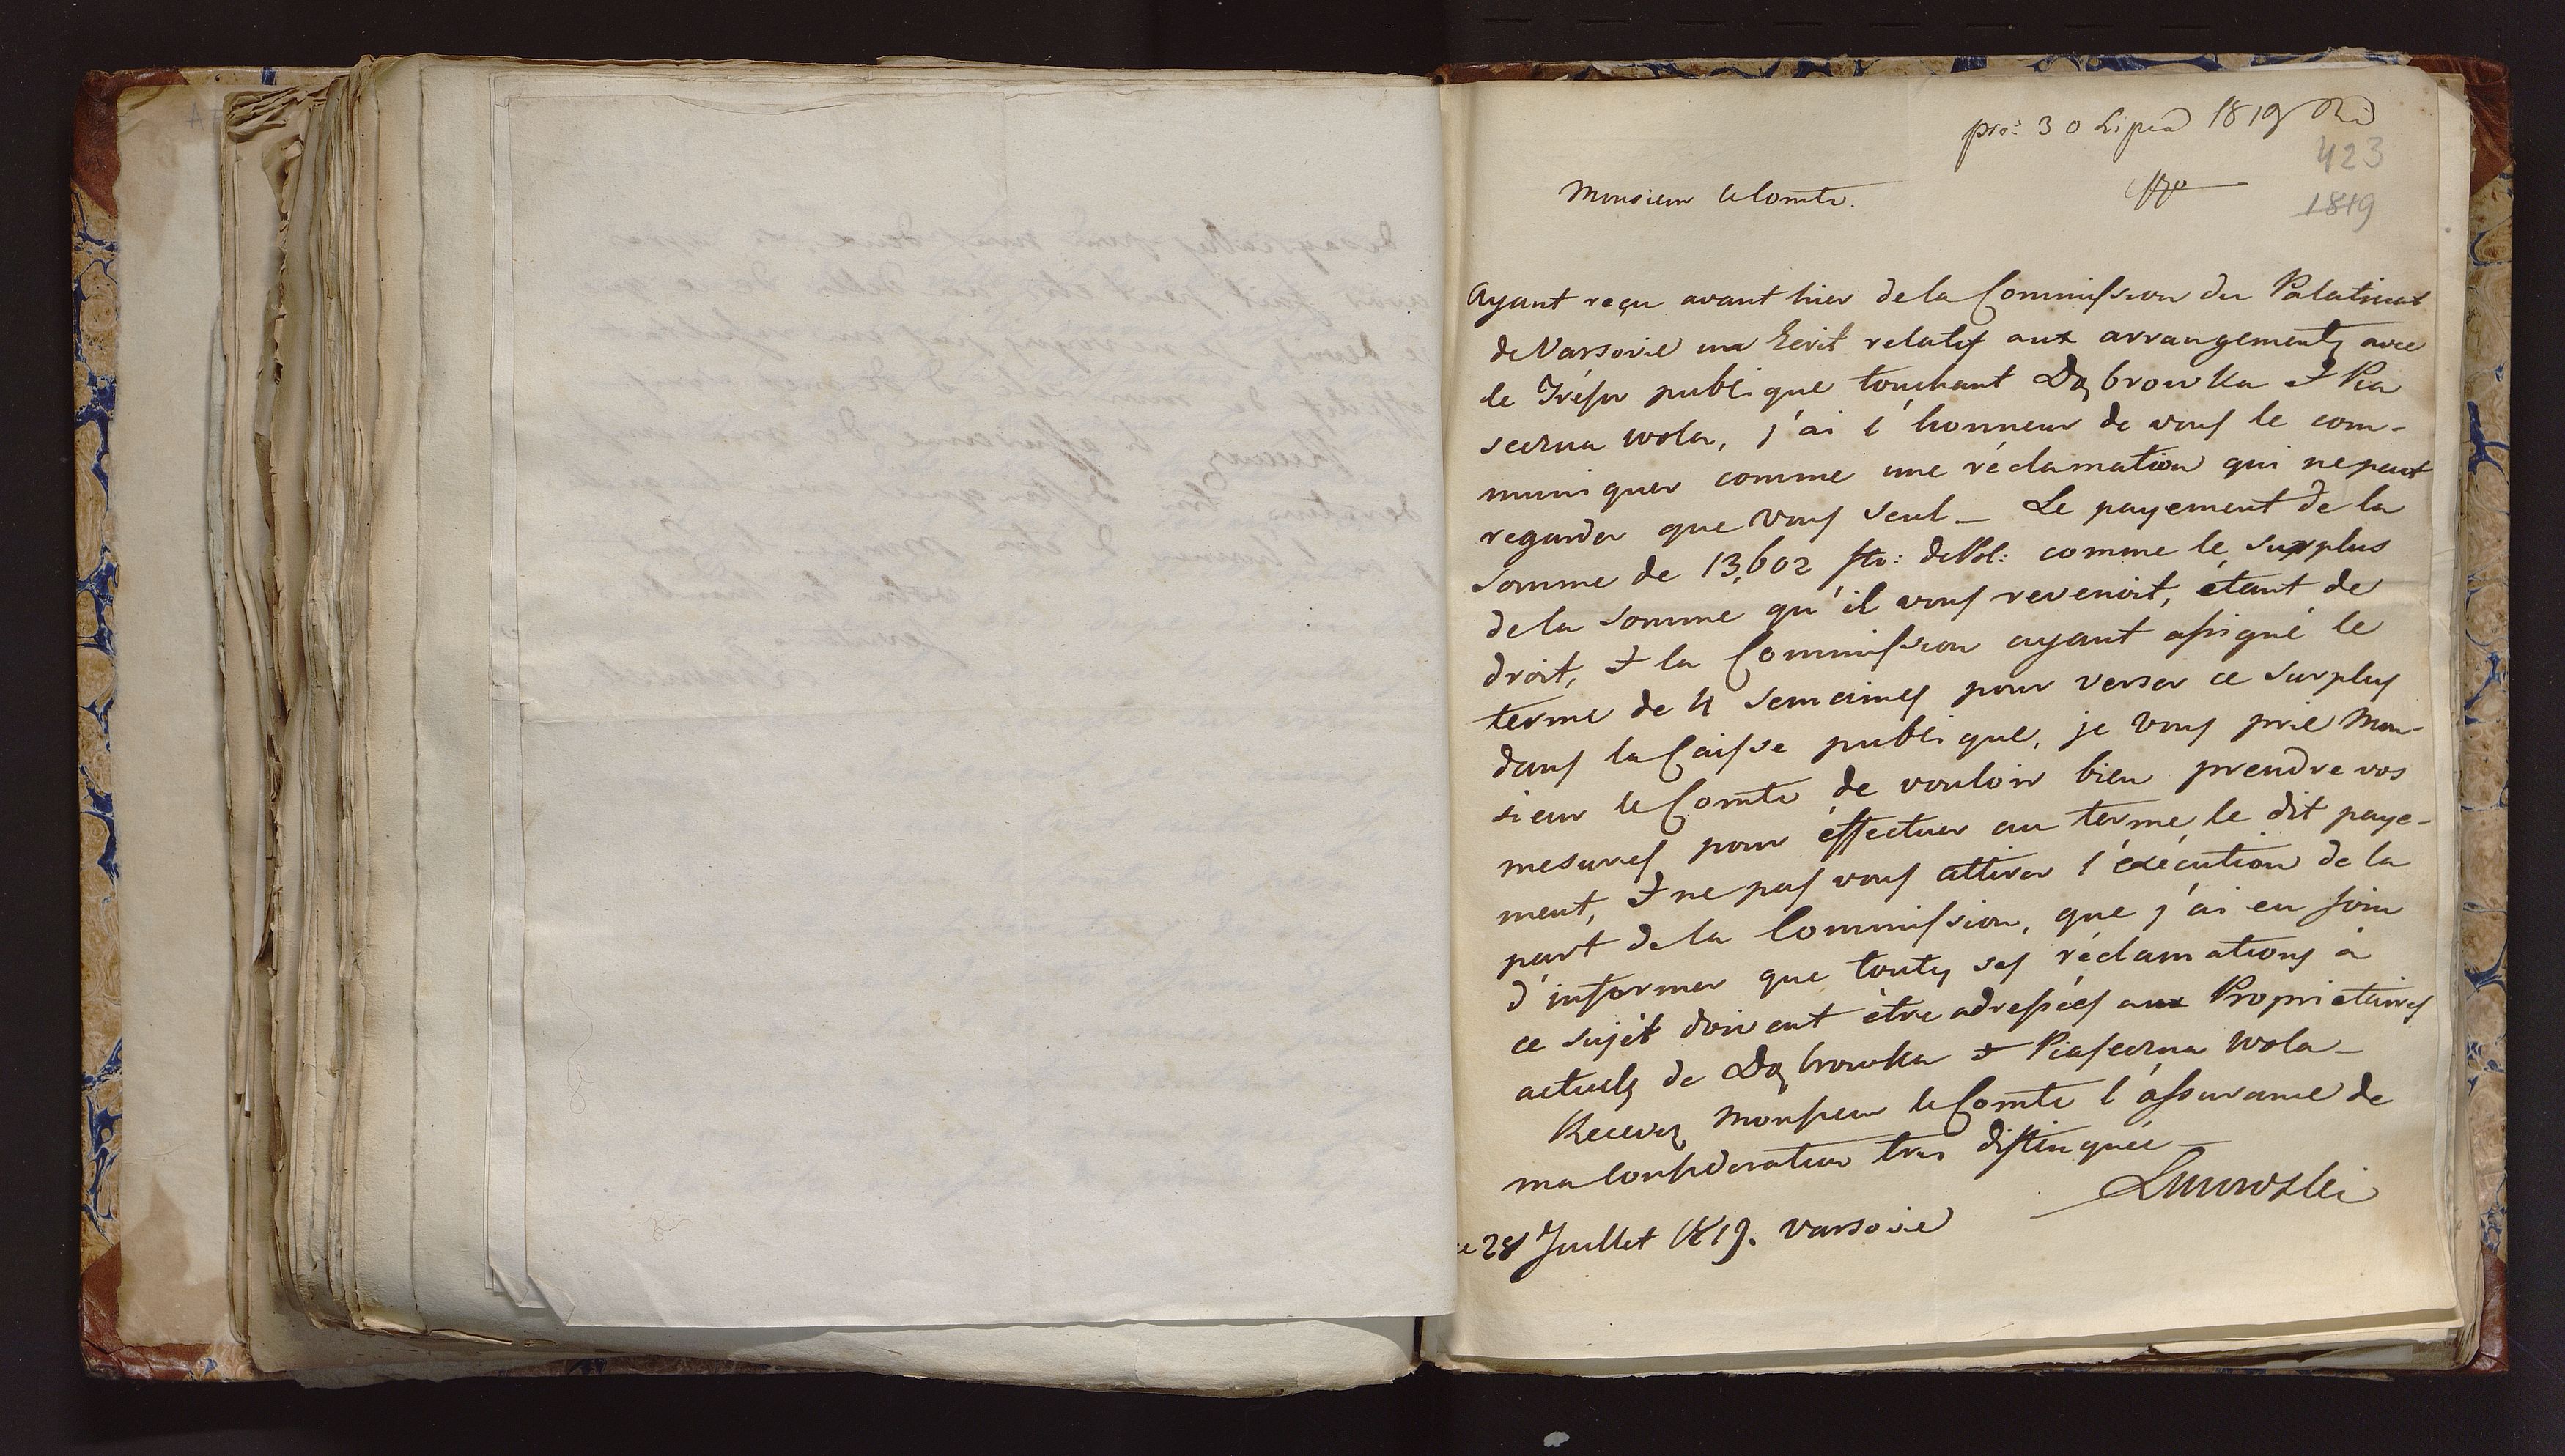 pro: 30 Lipca 1819
423
1819
Monsieur le Comte.
Ayant reçu avant hier de la Commission du Palatinat
de Varsovie un Ecrit relatif aux arrangements avec
le Trésor publique touchant Dąbrowka & Pia
seczna wola, j'ai l'honneur de vous le com-
muniquer comme une réclamation qui ne peut
regarder que vous seul_ Le payement de la
somme de 13,602 flo: de Pol: comme le surplus
de la somme qu'il vous revenoit, étant de
droit, & la Commission ayant assigné le
terme de 4 semaines pour verser ce surplus
dans la Caisse publique, je vous prie Mon-
sieur le Comte de vouloir bien prendre vos
mesures pour éffectuer au terme, le dit paye-
ment, & ne pas vous attirer l'éxécution de la
part de la Commission, que j'ai eu soin
d'informer que toutes ses réclamations à
ce sujét doivent être adressées aux Proprietaires
actuels de Dąbrowka & Piaseczna Wola_
Recevez Monsieur le Comte l'assurance de
ma Consideration tres distinguée
ce 28 Juillet 1819. Varsovie